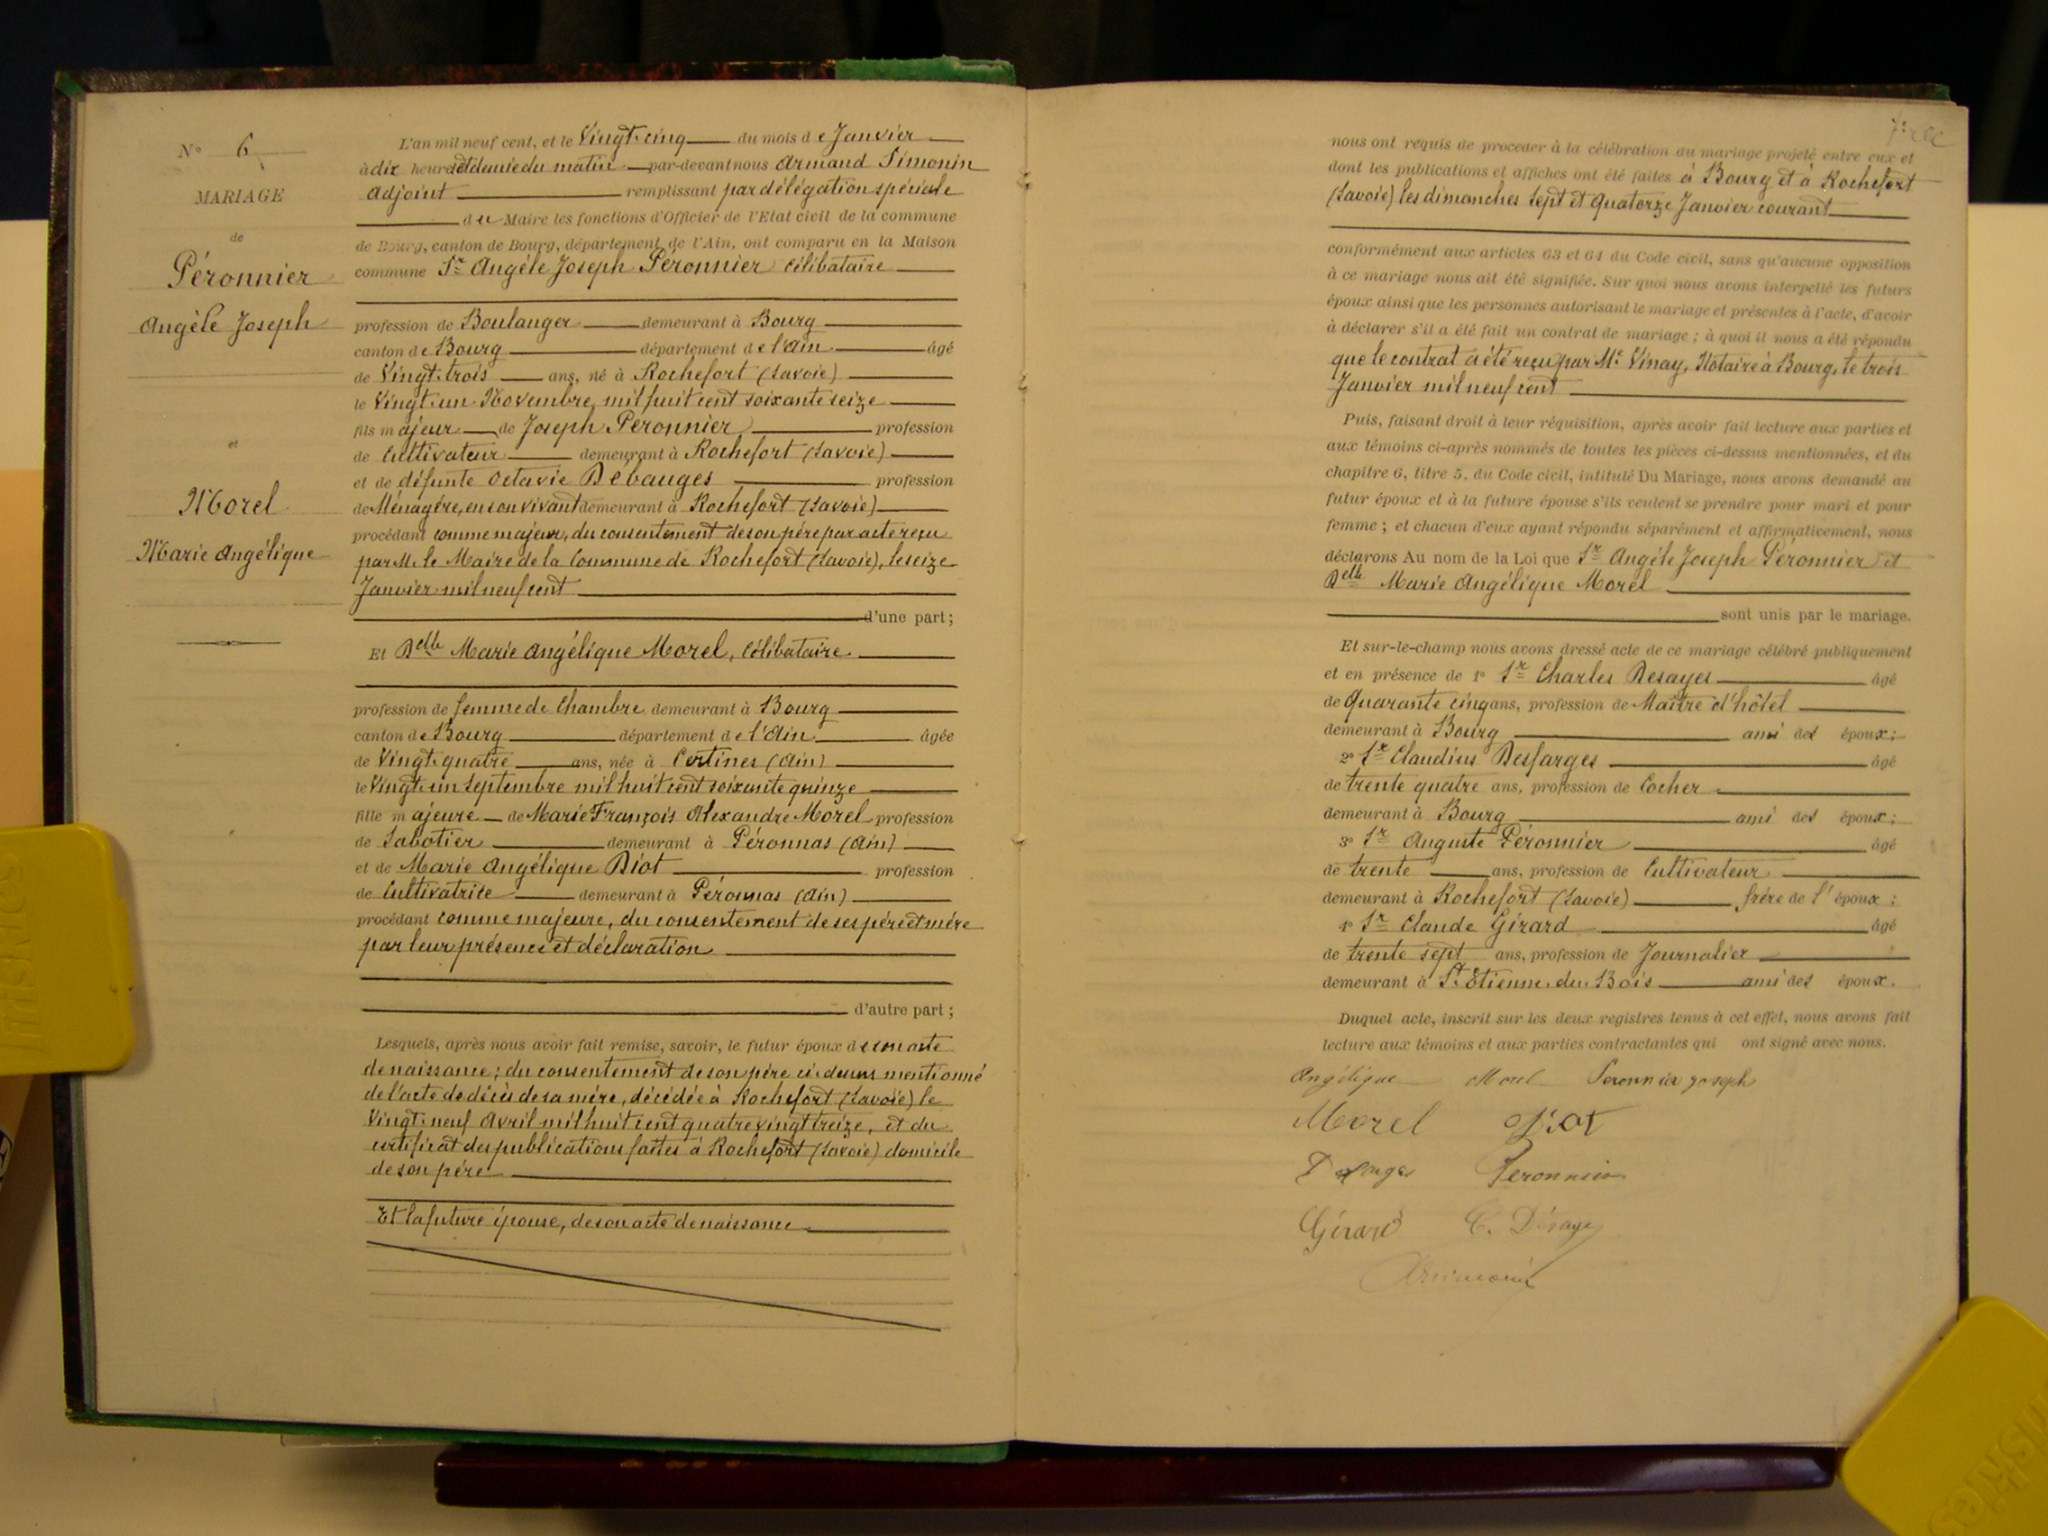 N° 6
MARIAGE
de
Péronnier
Angèle Joseph
et
Morel
Marie Angélique
L'an mil neuf cent, et le Vingt-cinq du mois de Janvier
à dix heures et demie du matin par-devant nous Armand Simonin
Adjoint remplissant par délégation spéciale
du Maire les fonctions d'Officier de l'Etat civil de la commune
de Bourg, canton de Bourg, département de l'Ain, ont comparu en la Maison
commune Sr Angèle Joseph Péronnier célibataire
profession de Boulanger demeurant à Bourg
canton de Bourg département de l'Ain âgé
de Vingt-trois ans, né à Rochefort (Savoie)
le Vingt-un Novembre mil huit cent soixante seize
fils majeur de Joseph Péronnier profession
de Cultivateur demeurant à Rochefort (Savoie)
et de défunte Octavie Debauges profession
de Ménagère, en son vivant demeurant à Rochefort (Savoie)
procédant comme majeur, du consentement de son père par acte reçu
par M. le Maire de la Commune de Rochefort (Savoie), le seize
Janvier mil neuf cent
d'une part;
Et Delle Marie Angélique Morel, célibataire
profession de femme de Chambre demeurant à Bourg
canton de Bourg département de l'Ain âgée
de Vingt-quatre ans, née à Certines (Ain)
le Vingt-un Septembre mil huit cent soixante quinze
fille majeure de Marie François Alexandre Morel profession
de Sabotier demeurant à Péronnas (Ain)
et de Marie Angélique Diot profession
de Cultivatrice demeurant à Péronnas (Ain)
procédant comme majeure, du consentement de ses père et mère
par leur présence et déclaration
d'autre part;
Lesquels, après nous avoir fait remise, savoir, le futur époux de son acte
de naissance; du consentement de son père ci-dessus mentionné
de l'acte de décès de sa mère, décédée à Rochefort (Savoie) le
Vingt-neuf Avril mil huit cent quatre vingt treize, et du
certificat des publications faites à Rochefort (Savoie) domicile
de son père
Et la future épouse, de son acte de naissance
nous ont requis de procéder à la célébration du mariage projeté entre eux et
dont les publications et affiches ont été faites à Bourg et à Rochefort
(Savoie) les dimanches sept et quatorze Janvier courant
conformément aux articles 63 et 64 du Code civil, sans qu'aucune opposition
à ce mariage nous ait été signifiée. Sur quoi nous avons interpellé les futurs
époux ainsi que les personnes autorisant le mariage et présentes à l'acte, d'avoir
à déclarer s'il a été fait un contrat de mariage; à quoi il nous a été répondu
que le contrat a été reçu par Me Vinay, Notaire à Bourg, le trois
Janvier mil neuf cent
Puis, faisant droit à leur réquisition, après avoir fait lecture aux parties et
aux témoins ci-après nommés de toutes les pièces ci-dessus mentionnées, et du
chapitre 6, titre 5, du Code civil, intitulé Du Mariage, nous avons demandé au
futur époux et à la future épouse s'ils veulent se prendre pour mari et pour
femme; et chacun d'eux ayant répondu séparément et affirmativement, nous
déclarons Au nom de la Loi que Sr Angèle Joseph Péronnier et
Delle Marie Angélique Morel
sont unis par le mariage.
Et sur-le-champ nous avons dressé acte de ce mariage célébré publiquement
et en présence de 1° Sr Charles Desayes âgé
de Quarante cinq ans, profession de Maître d'hôtel
demeurant à Bourg ami des époux;
2° Sr Claudius Desfarges âgé
de trente quatre ans, profession de Cocher
demeurant à Bourg ami des époux;
3° Sr Auguste Péronnier âgé
de trente ans, profession de Cultivateur
demeurant à Rochefort (Savoie) frère de l'époux;
4° Sr Claude Gérard âgé
de trente sept ans, profession de Journalier
demeurant à St Etienne du Bois ami des époux.
Duquel acte, inscrit sur les deux registres tenus à cet effet, nous avons fait
lecture aux témoins et aux parties contractantes qui ont signé avec nous.
Angélique Morel Peronnier Joseph
Morel Diot
Peronnier
Gérard C. Désayes